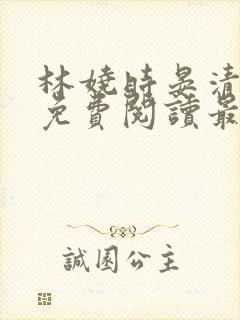 林嬈時晏清
免費閱讀最
誠園公主